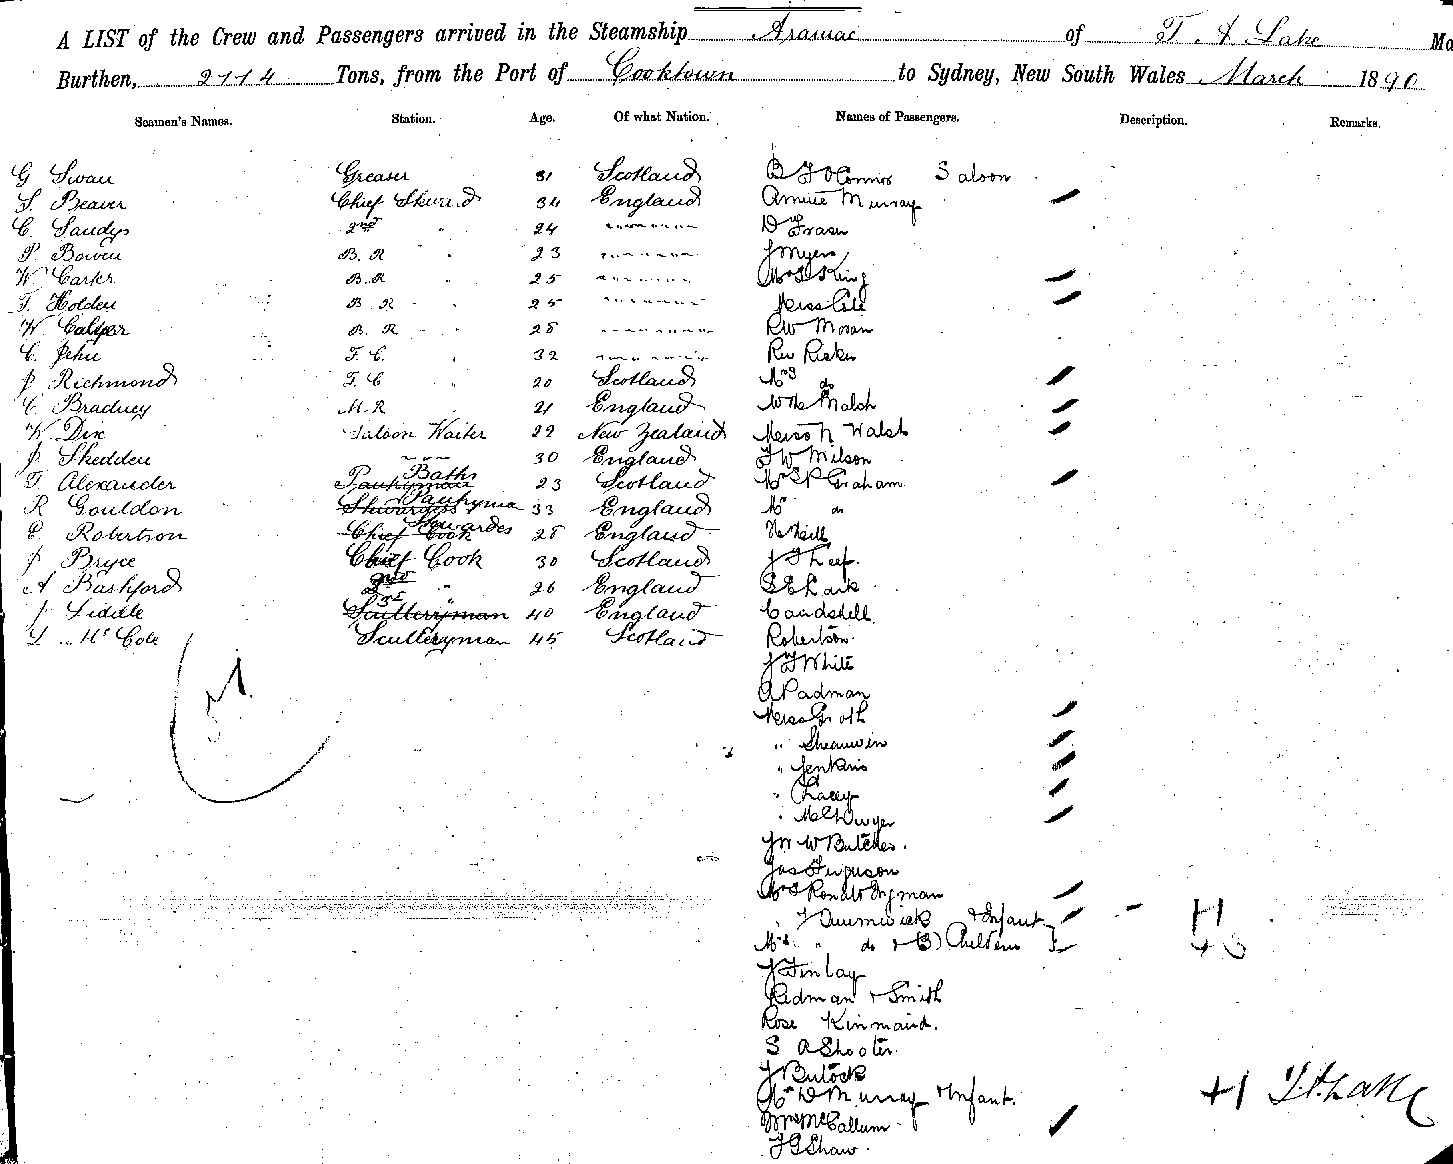 A LIST of the Crew and Passengers arrived in the Steamship Aramac of T A Lake Ma
Burthen, 2114 Tons, from the Port of Cooktown to Sydney, New South Wales March 1890
Seamen's Names. Station. Age. Of what Nation. Names of Passengers. Description. Remarks.
G Swan Greaser 31 Scotland B J O'Connor Saloon
S. Beaver Chief Steward 34 England Murray
C. Sandys 2nd " 24 " D Fraser
P. Bowen B. R " 23 " J Myers
W Carter B. R " 25 " Mrs King
T. Holden B R " 25 " Miss Cole
W. B. R " 28 " Rev Moran
C. John F. C. " 32 " Rev
J Richmond F. C " 20 Scotland Mrs do
C Braduey M. R 21 England
W Dix Saloon Waiter 22 New Zealand Miss N Walsh
J Skedden " 30 England J W Wilson
T. Alexander Pantryman Baths 23 Scotland Mrs Graham
R Gouldon Pantryman 33 England Mr do
E Robertson Chief Cook Stewardes 28 England Neill
J Bryce Chief Cook 30 Scotland J T
A Bashford 2nd " 26 England
J Liddle 3rd Sculleryman 40 England
L McCole Sculleryman 45 Scotland Robertson
J J White
A Padman
Miss Groth
"
" Jenkins
" Lacey
" McDwyer
Jas Ferguson
Mrs
" + Infant
Mrs " do + (3) Children
J Finlay
Redman + Smith
Rose Kinnaird.
S A Shooter.
J Bulock
Mr D Murray + Infant.
Mrs McCallum
J G Shaw.
T. A. Lake